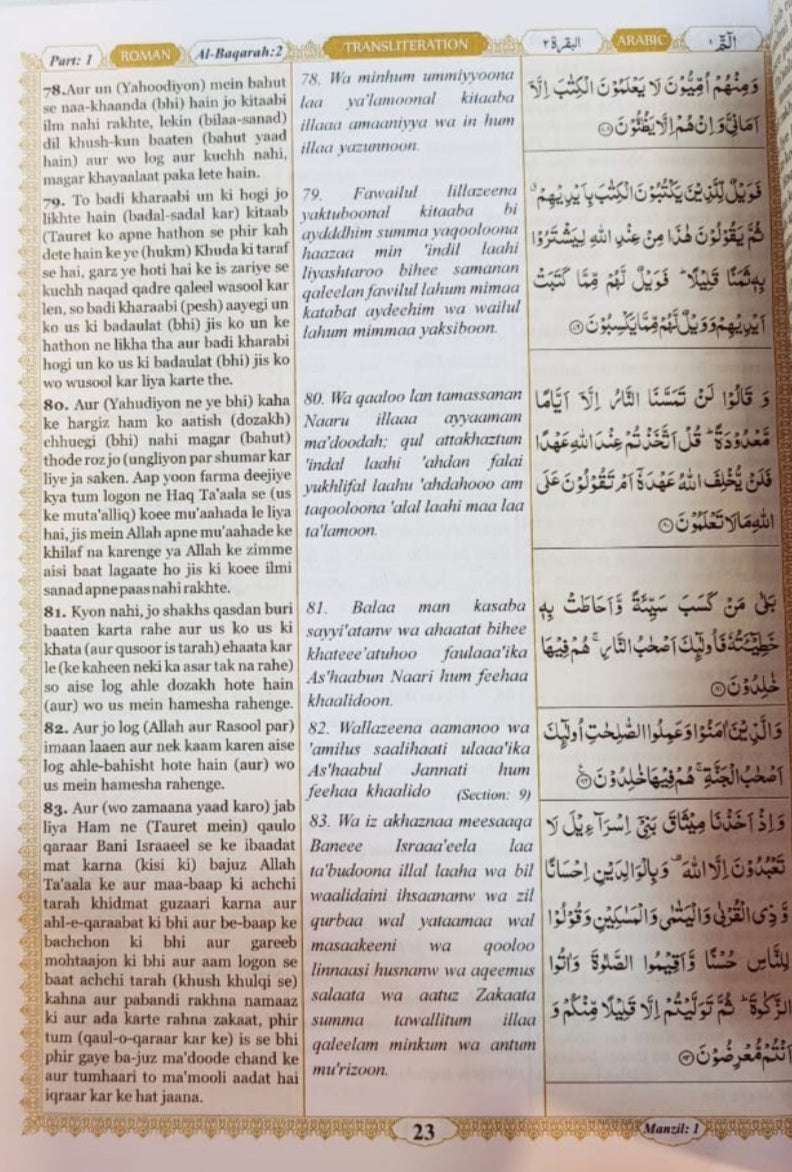 Part: 1
ROMAN
Al-Baqarah:2
TRANSLITERATION
البقرة ٢
ARABIC
الٓمّٓ ١
78.Aur un (Yahoodiyon) mein bahut
se naa-khaanda (bhi) hain jo kitaabi
ilm nahi rakhte, lekin (bilaa-sanad)
dil khush-kun baaten (bahut yaad
hain) aur wo log aur kuchh nahi,
magar khayaalaat paka lete hain.
79. To badi kharaabi un ki hogi jo
likhte hain (badal-sadal kar) kitaab
(Tauret ko apne hathon se phir kah
dete hain ke ye (hukm) Khuda ki taraf
se hai, garz ye hoti hai ke is zariye se
kuchh naqad qadre qaleel wasool kar
len, so badi kharaabi (pesh) aayegi un
ko us ki badaulat (bhi) jis ko un ke
hathon ne likha tha aur badi kharabi
hogi un ko us ki badaulat (bhi) jis ko
wo wusool kar liya karte the.
80. Aur (Yahudiyon ne ye bhi) kaha
ke hargiz ham ko aatish (dozakh)
chhuegi (bhi) nahi magar (bahut)
thode roz jo (ungliyon par shumar kar
liye ja saken. Aap yoon farma deejiye
kya tum logon ne Haq Ta'aala se (us
ke muta'alliq) koee mu'aahada le liya
hai, jis mein Allah apne mu'aahade ke
khilaf na karenge ya Allah ke zimme
aisi baat lagaate ho jis ki koee ilmi
sanad apne paas nahi rakhte.
81. Kyon nahi, jo shakhs qasdan buri
baaten karta rahe aur us ko us ki
khata (aur qusoor is tarah) ehaata kar
le (ke kaheen neki ka asar tak na rahe)
so aise log ahle dozakh hote hain
(aur) wo us mein hamesha rahenge.
82. Aur jo log (Allah aur Rasool par)
imaan laaen aur nek kaam karen aise
log ahle-bahisht hote hain (aur) wo
us mein hamesha rahenge.
83. Aur (wo zamaana yaad karo) jab
liya Ham ne (Tauret mein) qaulo
qaraar Bani Israaeel se ke ibaadat
mat karna (kisi ki) bajuz Allah
Ta'aala ke aur maa-baap ki achchi
tarah khidmat guzaari karna aur
ahl-e-qaraabat ki bhi aur be-baap ke
bachchon ki bhi aur gareeb
mohtaajon ki bhi aur aam logon se
baat achchi tarah (khush khulqi se)
kahna aur pabandi rakhna namaaz
ki aur ada karte rahna zakaat, phir
tum (qaul-o-qaraar kar ke) is se bhi
phir gaye ba-juz ma'doode chand ke
aur tumhaari to ma'mooli aadat hai
iqraar kar ke hat jaana.
78. Wa minhum ummiyyoona
laa ya'lamoonal kitaaba
illaaa amaaniyya wa in hum
illaa yazunnoon.
79. Fawailul lillazeena
yaktuboonal kitaaba bi
aydddhim summa yaqooloona
haazaa min 'indil laahi
liyashtaroo bihee samanan
qaleelan fawilul lahum mimaa
katabat aydeehim wa wailul
lahum mimmaa yaksiboon.
80. Wa qaaloo lan tamassanan
Naaru illaaa ayyaamam
ma'doodah; qul attakhaztum
'indal laahi 'ahdan falai
yukhlifal laahu 'ahdahooo am
taqooloona 'alal laahi maa laa
ta'lamoon.
81. Balaa man kasaba
sayyi'atanw wa ahaatat bihee
khateee'atuhoo faulaaa'ika
As'haabun Naari hum feehaa
khaalidoon.
82. Wallazeena aamanoo wa
'amilus saalihaati ulaaa'ika
As'haabul Jannati hum
feehaa khaalido (Section: 9)
83. Wa iz akhaznaa meesaaqa
Baneee Israaa'eela laa
ta'budoona illal laaha wa bil
waalidaini ihsaananw wa zil
qurbaa wal yataamaa wal
masaakeeni wa qooloo
linnaasi husnanw wa aqeemus
salaata wa aatuz Zakaata
summa tawallitum illaa
qaleelam minkum wa antum
mu'rizoon.
وَمِنْهُمْ اُمِّيُّوْنَ لَا يَعْلَمُوْنَ الْكِتٰبَ اِلَّاۤ
اَمَانِيَّ وَاِنْ هُمْ اِلَّا يَظُنُّوْنَ ۝٧٨
فَوَيْلٌ لِّلَّذِيْنَ يَكْتُبُوْنَ الْكِتٰبَ بِاَيْدِيْهِمْ ۗ
ثُمَّ يَقُوْلُوْنَ هٰذَا مِنْ عِنْدِ اللهِ لِيَشْتَرُوْا
بِهٖ ثَمَنًا قَلِيْلًا ؕ فَوَيْلٌ لَّهُمْ مِّمَّا كَتَبَتْ
اَيْدِيْهِمْ وَوَيْلٌ لَّهُمْ مِّمَّا يَكْسِبُوْنَ ۝٧٩
وَ قَالُوْا لَنْ تَمَسَّنَا النَّارُ اِلَّاۤ اَيَّامًا
مَّعْدُوْدَةً ؕ قُلْ اَتَّخَذْتُمْ عِنْدَ اللهِ عَهْدًا
فَلَنْ يُّخْلِفَ اللهُ عَهْدَهٗۤ اَمْ تَقُوْلُوْنَ عَلَى
اللهِ مَا لَا تَعْلَمُوْنَ ۝٨٠
بَلٰى مَنْ كَسَبَ سَيِّئَةً وَّاَحَاطَتْ بِهٖ
خَطِيْٓئَتُهٗ فَاُولٰٓئِكَ اَصْحٰبُ النَّارِ ۚ هُمْ فِيْهَا
خٰلِدُوْنَ ۝٨١
وَالَّذِيْنَ اٰمَنُوْا وَعَمِلُوا الصّٰلِحٰتِ اُولٰٓئِكَ
اَصْحٰبُ الْجَنَّةِ ۚ هُمْ فِيْهَا خٰلِدُوْنَ ۝٨٢
وَ اِذْ اَخَذْنَا مِيْثَاقَ بَنِيْۤ اِسْرَآءِيْلَ لَا
تَعْبُدُوْنَ اِلَّا اللهَ ۟ وَبِالْوَالِدَيْنِ اِحْسَانًا
وَّ ذِي الْقُرْبٰى وَالْيَتٰمٰى وَالْمَسٰكِيْنِ وَقُوْلُوْا
لِلنَّاسِ حُسْنًا وَّاَقِيْمُوا الصَّلٰوةَ وَاٰتُوا
الزَّكٰوةَ ؕ ثُمَّ تَوَلَّيْتُمْ اِلَّا قَلِيْلًا مِّنْكُمْ وَ
اَنْتُمْ مُّعْرِضُوْنَ ۝٨٣
23
Manzil: 1